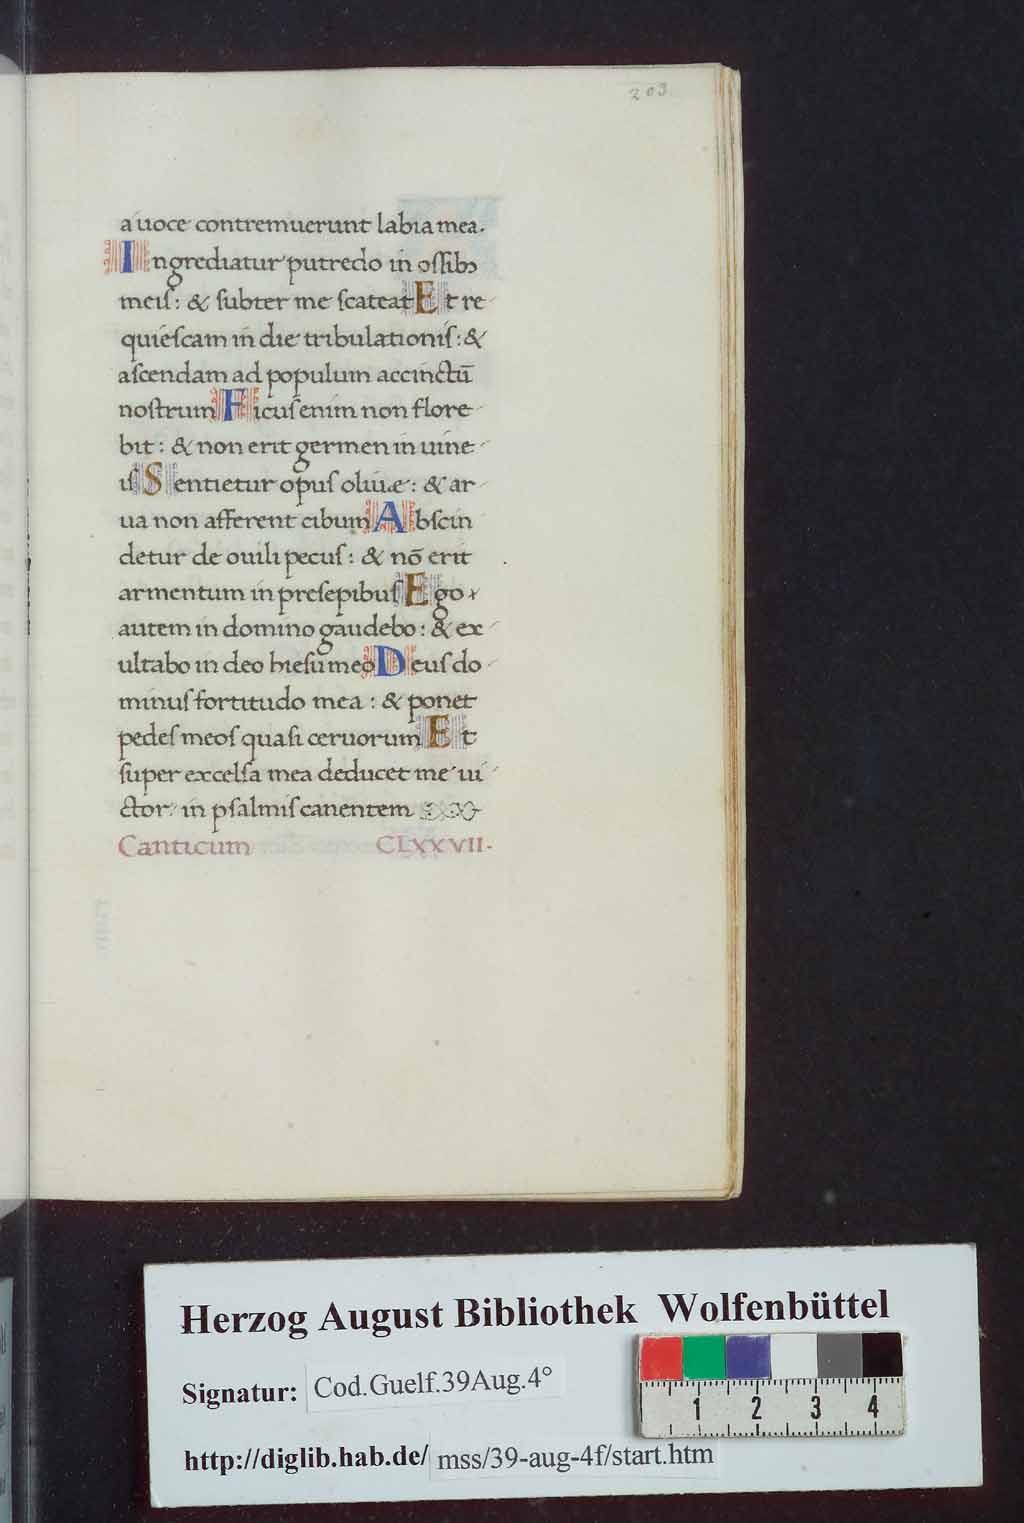 203
a uoce contremuerunt labia mea.
Ingrediatur putredo in ossibꝫ
meis: & subter me scateat Et re
quiescam in die tribulationis: &
ascendam ad populum accinctū
nostrum Ficus enim non flore
bit: & non erit germen in uine
is Sentietur opus oliuæ: & ar
ua non afferent cibum Abscin
detur de ouili pecus: & nō erit
armentum in presepibus Ego
autem in domino gaudebo: & ex
ultabo in deo hiesu meo Deus do
minus fortitudo mea: & ponet
pedes meos quasi ceruorum Et
super excelsa mea deducet me ui
ctor in psalmis canentem
Canticum CLXXVII.
Herzog August Bibliothek Wolfenbüttel
Signatur: Cod.Guelf.39Aug.4°
http://diglib.hab.de/mss/39-aug-4f/start.htm
1 2 3 4